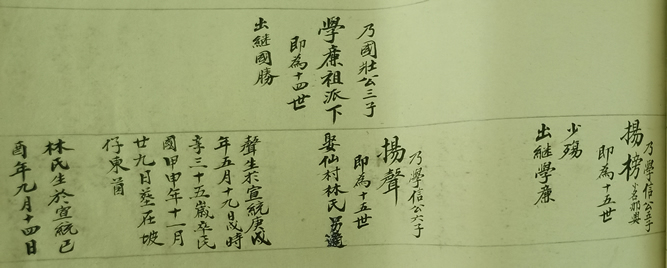 乃國壯公三子
學廉祖派下
即為十四世
出繼國勝
揚榜
乃學信公五子
即為十五世
少殤
出繼學廉
乃學信公六子
揚聲
即為十五世
娶仙村林氏 另適
聲生於宣統庚戌
年五月十九日戌時
享三十五歲卒民
國甲申年十一月
廿九日塟在坡
仔東酋
林氏生於宣統己
酉年九月十四日